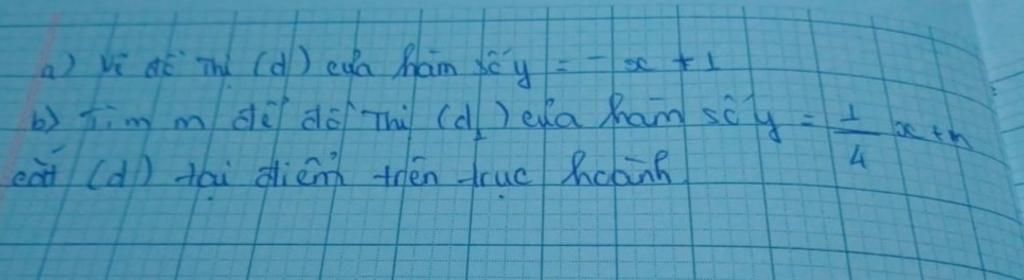 a) Vẽ đồ thị (d) của hàm số y = - x + 1
b) Tìm m để đồ thị (d₁) của hàm số y = 1/4 x + m
cắt (d) tại điểm trên trục hoành